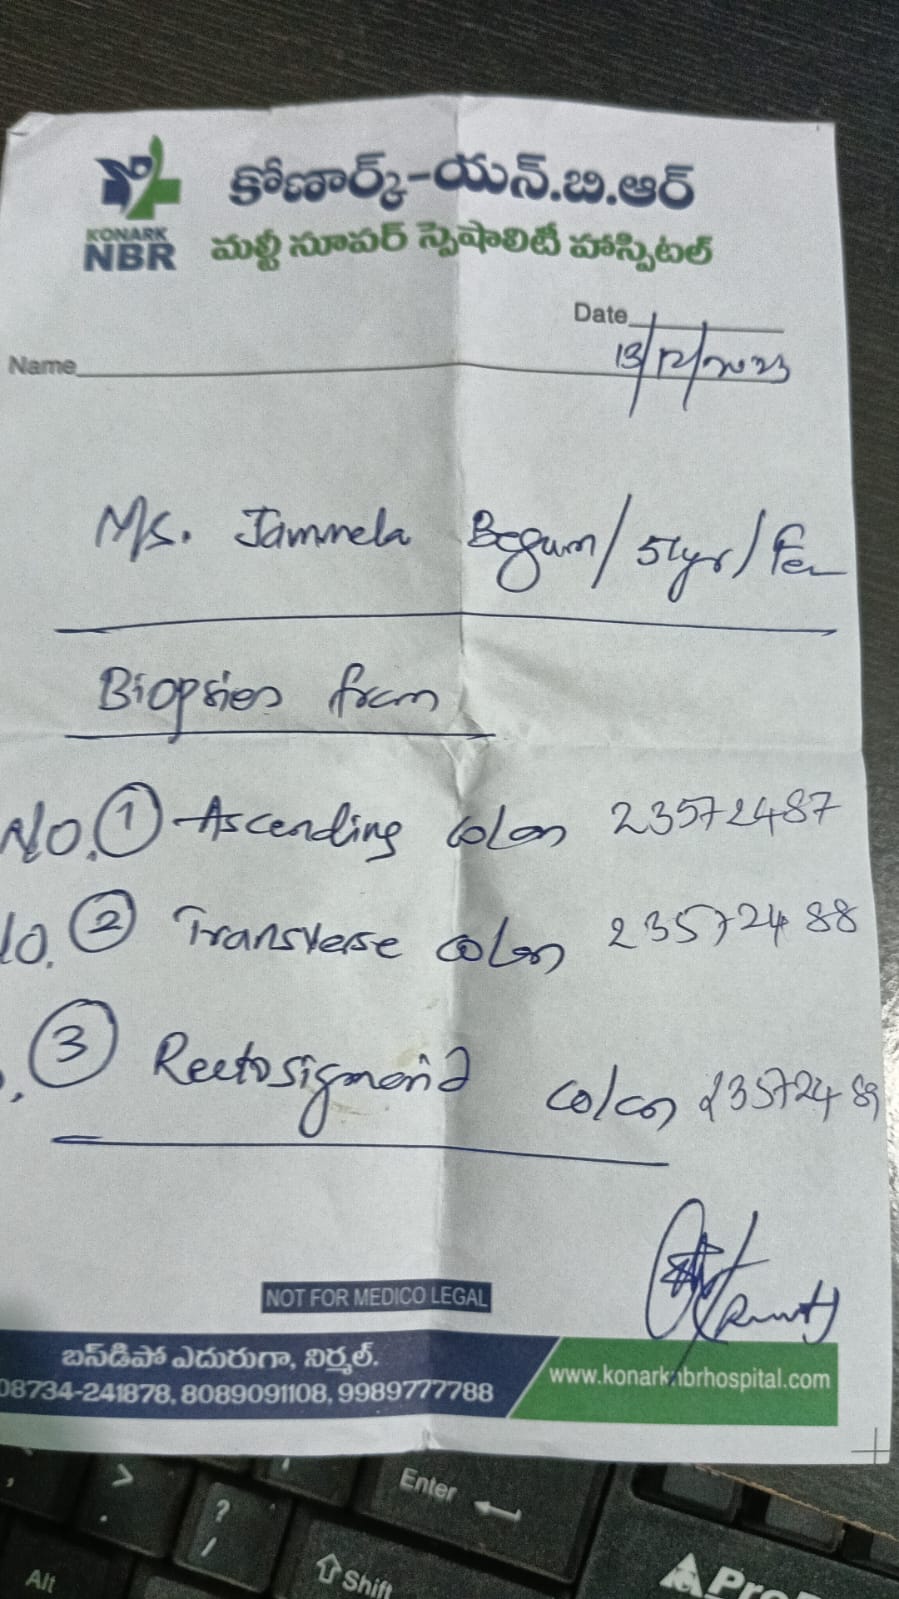 కోణార్క్-యన్.బి.ఆర్
KONARK
NBR
మల్టీ సూపర్ స్పెషాలిటీ హాస్పిటల్
Date 13/12/2023
Name
M/s. Jammela Begum / 54yr / Fem
Biopsies from
No. ① Ascending colon 23572487
No. ② Transverse colon 23572488
③ Rectosigmoid colon 23572489
NOT FOR MEDICO LEGAL
బస్‌డిపో ఎదురుగా, నిర్మల్.
08734-241878, 8089091108, 9989777788
www.konarknbrhospital.com
Enter
>
.
?
/
Shift
Alt